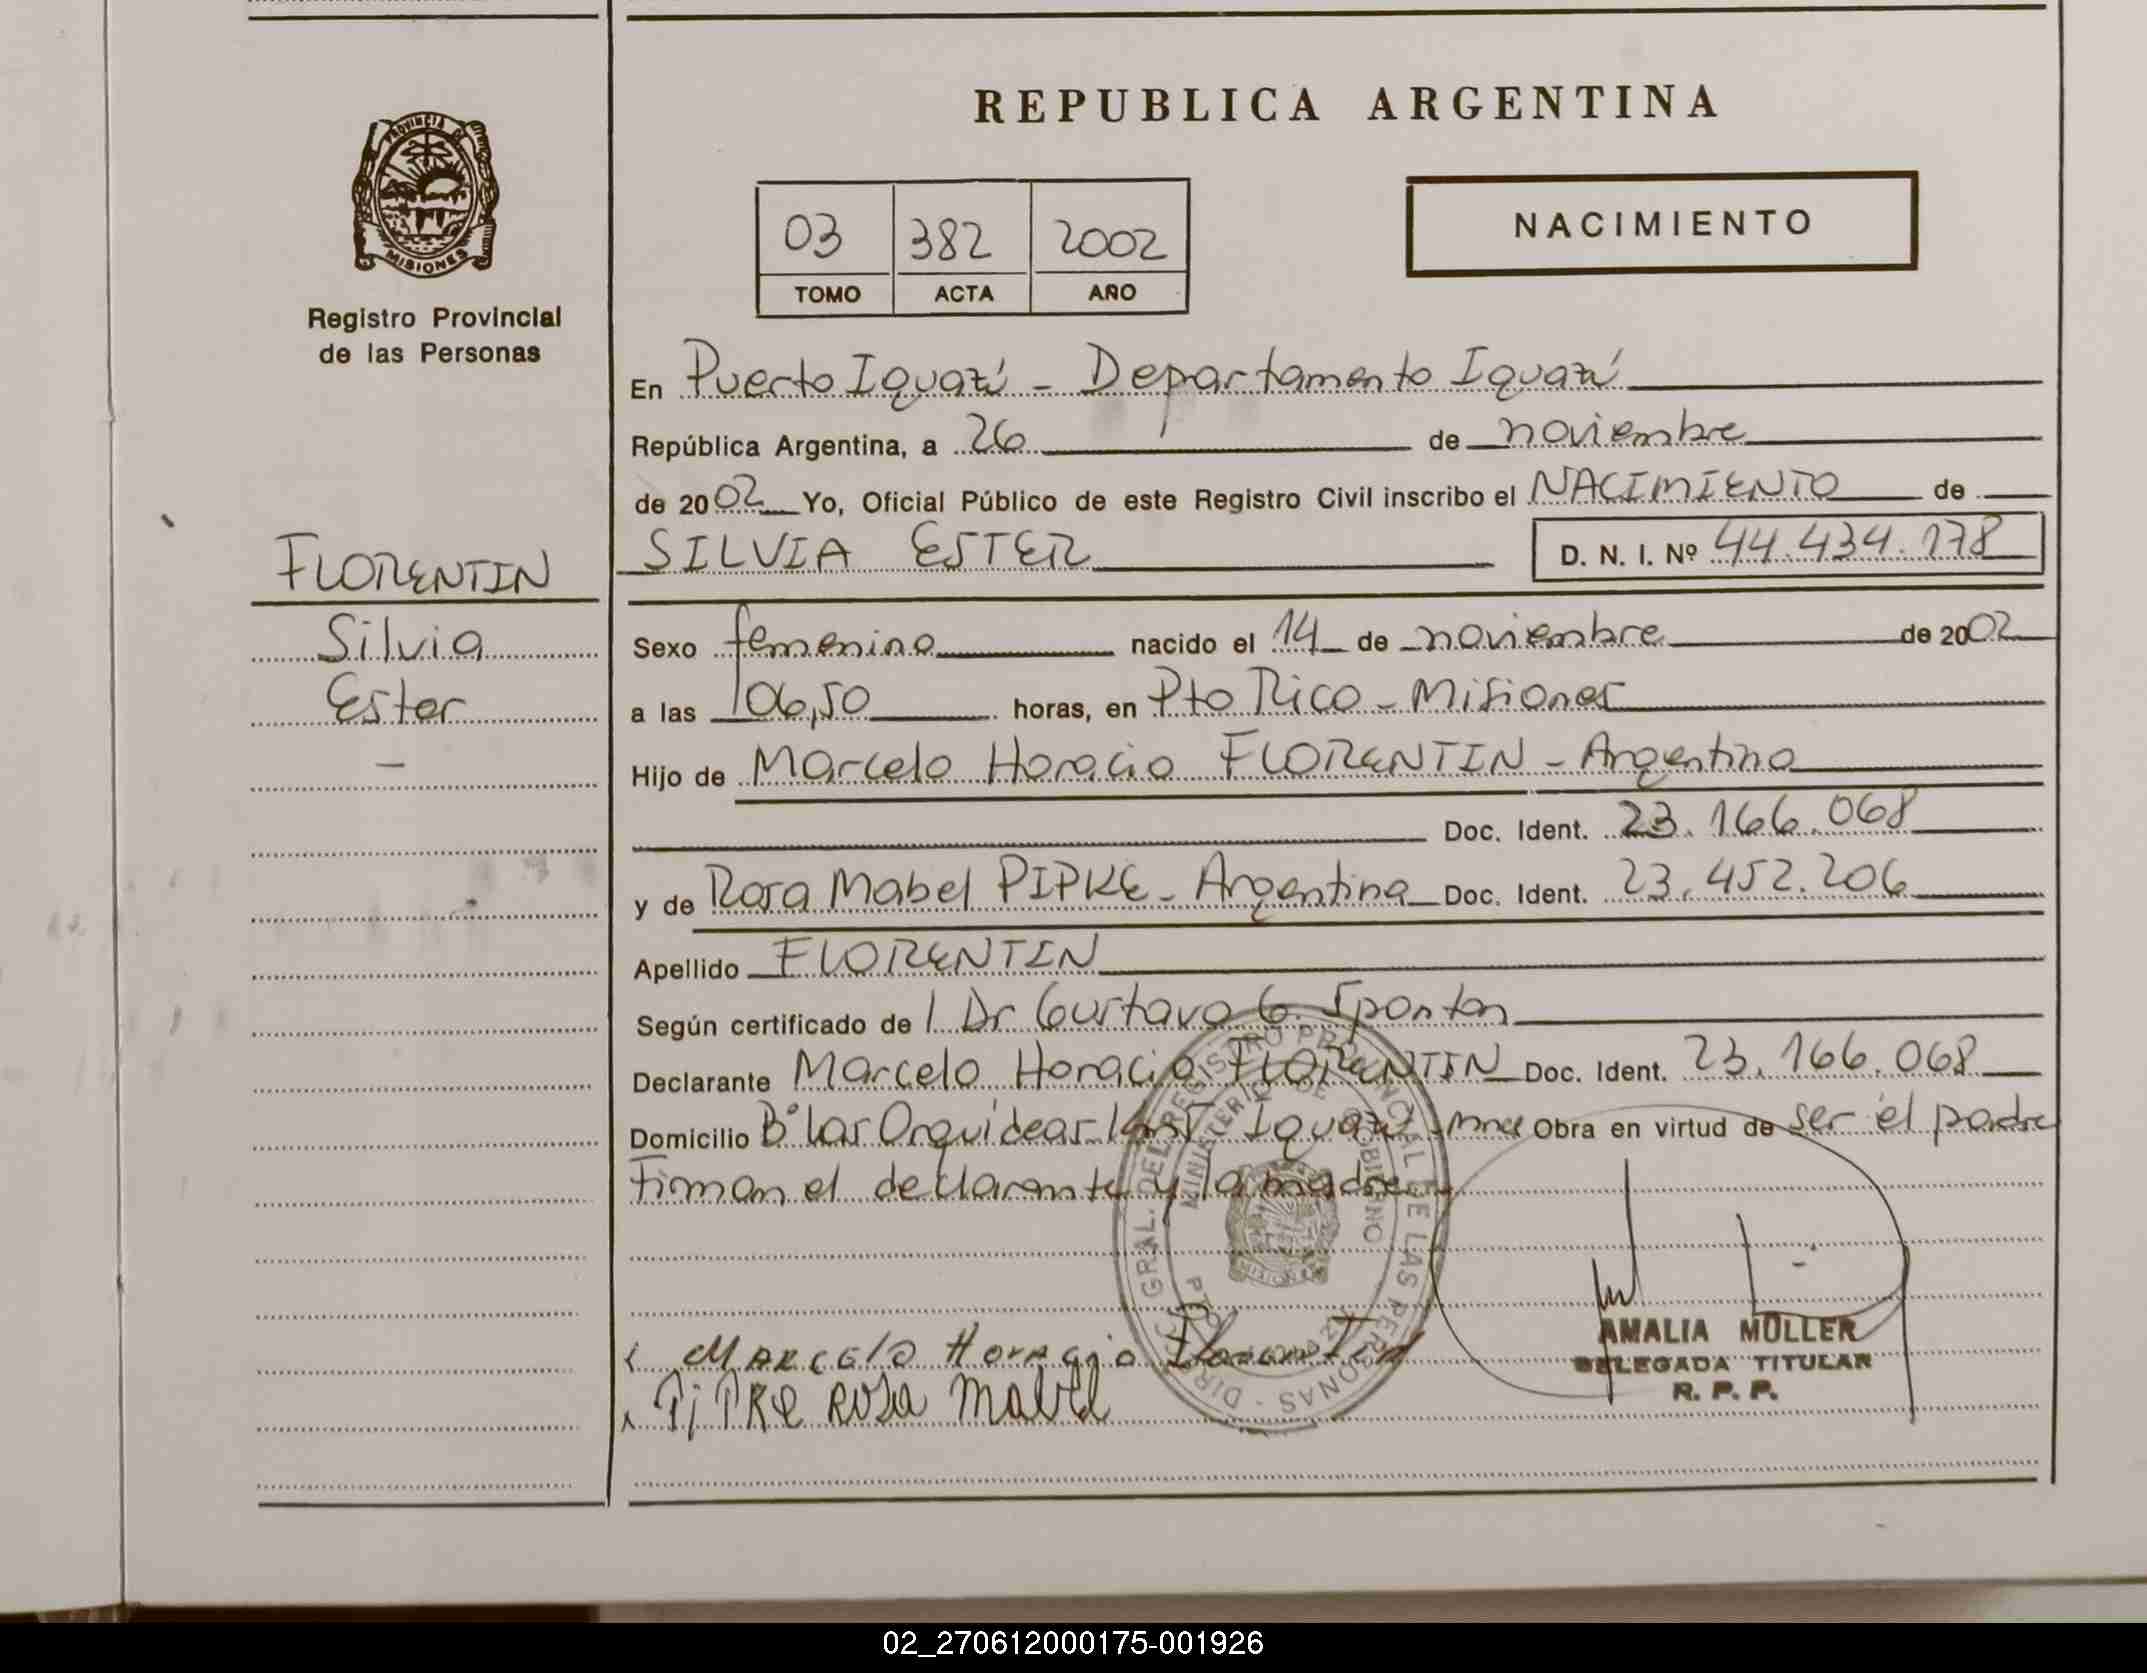 REPUBLICA ARGENTINA
PROVINCIA DE
MISIONES
Registro Provincial
de las Personas
03 382 2002
TOMO ACTA AÑO
NACIMIENTO
En Puerto Iguazú - Departamento Iguazú
República Argentina, a 26 de noviembre
de 2002 Yo, Oficial Público de este Registro Civil inscribo el NACIMIENTO de
SILVIA ESTER D. N. I. Nº 44.434.178
FLORENTIN
Silvia
Ester
-
Sexo femenino nacido el 14 de noviembre de 2002
a las 06,50 horas, en Pto Rico - Misiones
Hijo de Marcelo Horacio FLORENTIN - Argentina
Doc. Ident. 23.166.068
y de Rosa Mabel PIPKE - Argentina Doc. Ident. 23.452.206
Apellido FLORENTIN
Según certificado de / Dr Gustavo G. Sponton
Declarante Marcelo Horacio FLORENTIN Doc. Ident. 23.166.068
Domicilio Bº Las Orquídeas - Iguazú - Mnes Obra en virtud de ser el padre
Firman el declarante y la madre
DIREC. GRAL. DEL REGISTRO PROVINCIAL DE LAS PERSONAS
MINISTERIO DE GOBIERNO
MISIONES
Marcelo Horacio Florentin
PiPKe Rosa Mabel
AMALIA MULLER
DELEGADA TITULAR
R. P. P.
02_270612000175-001926